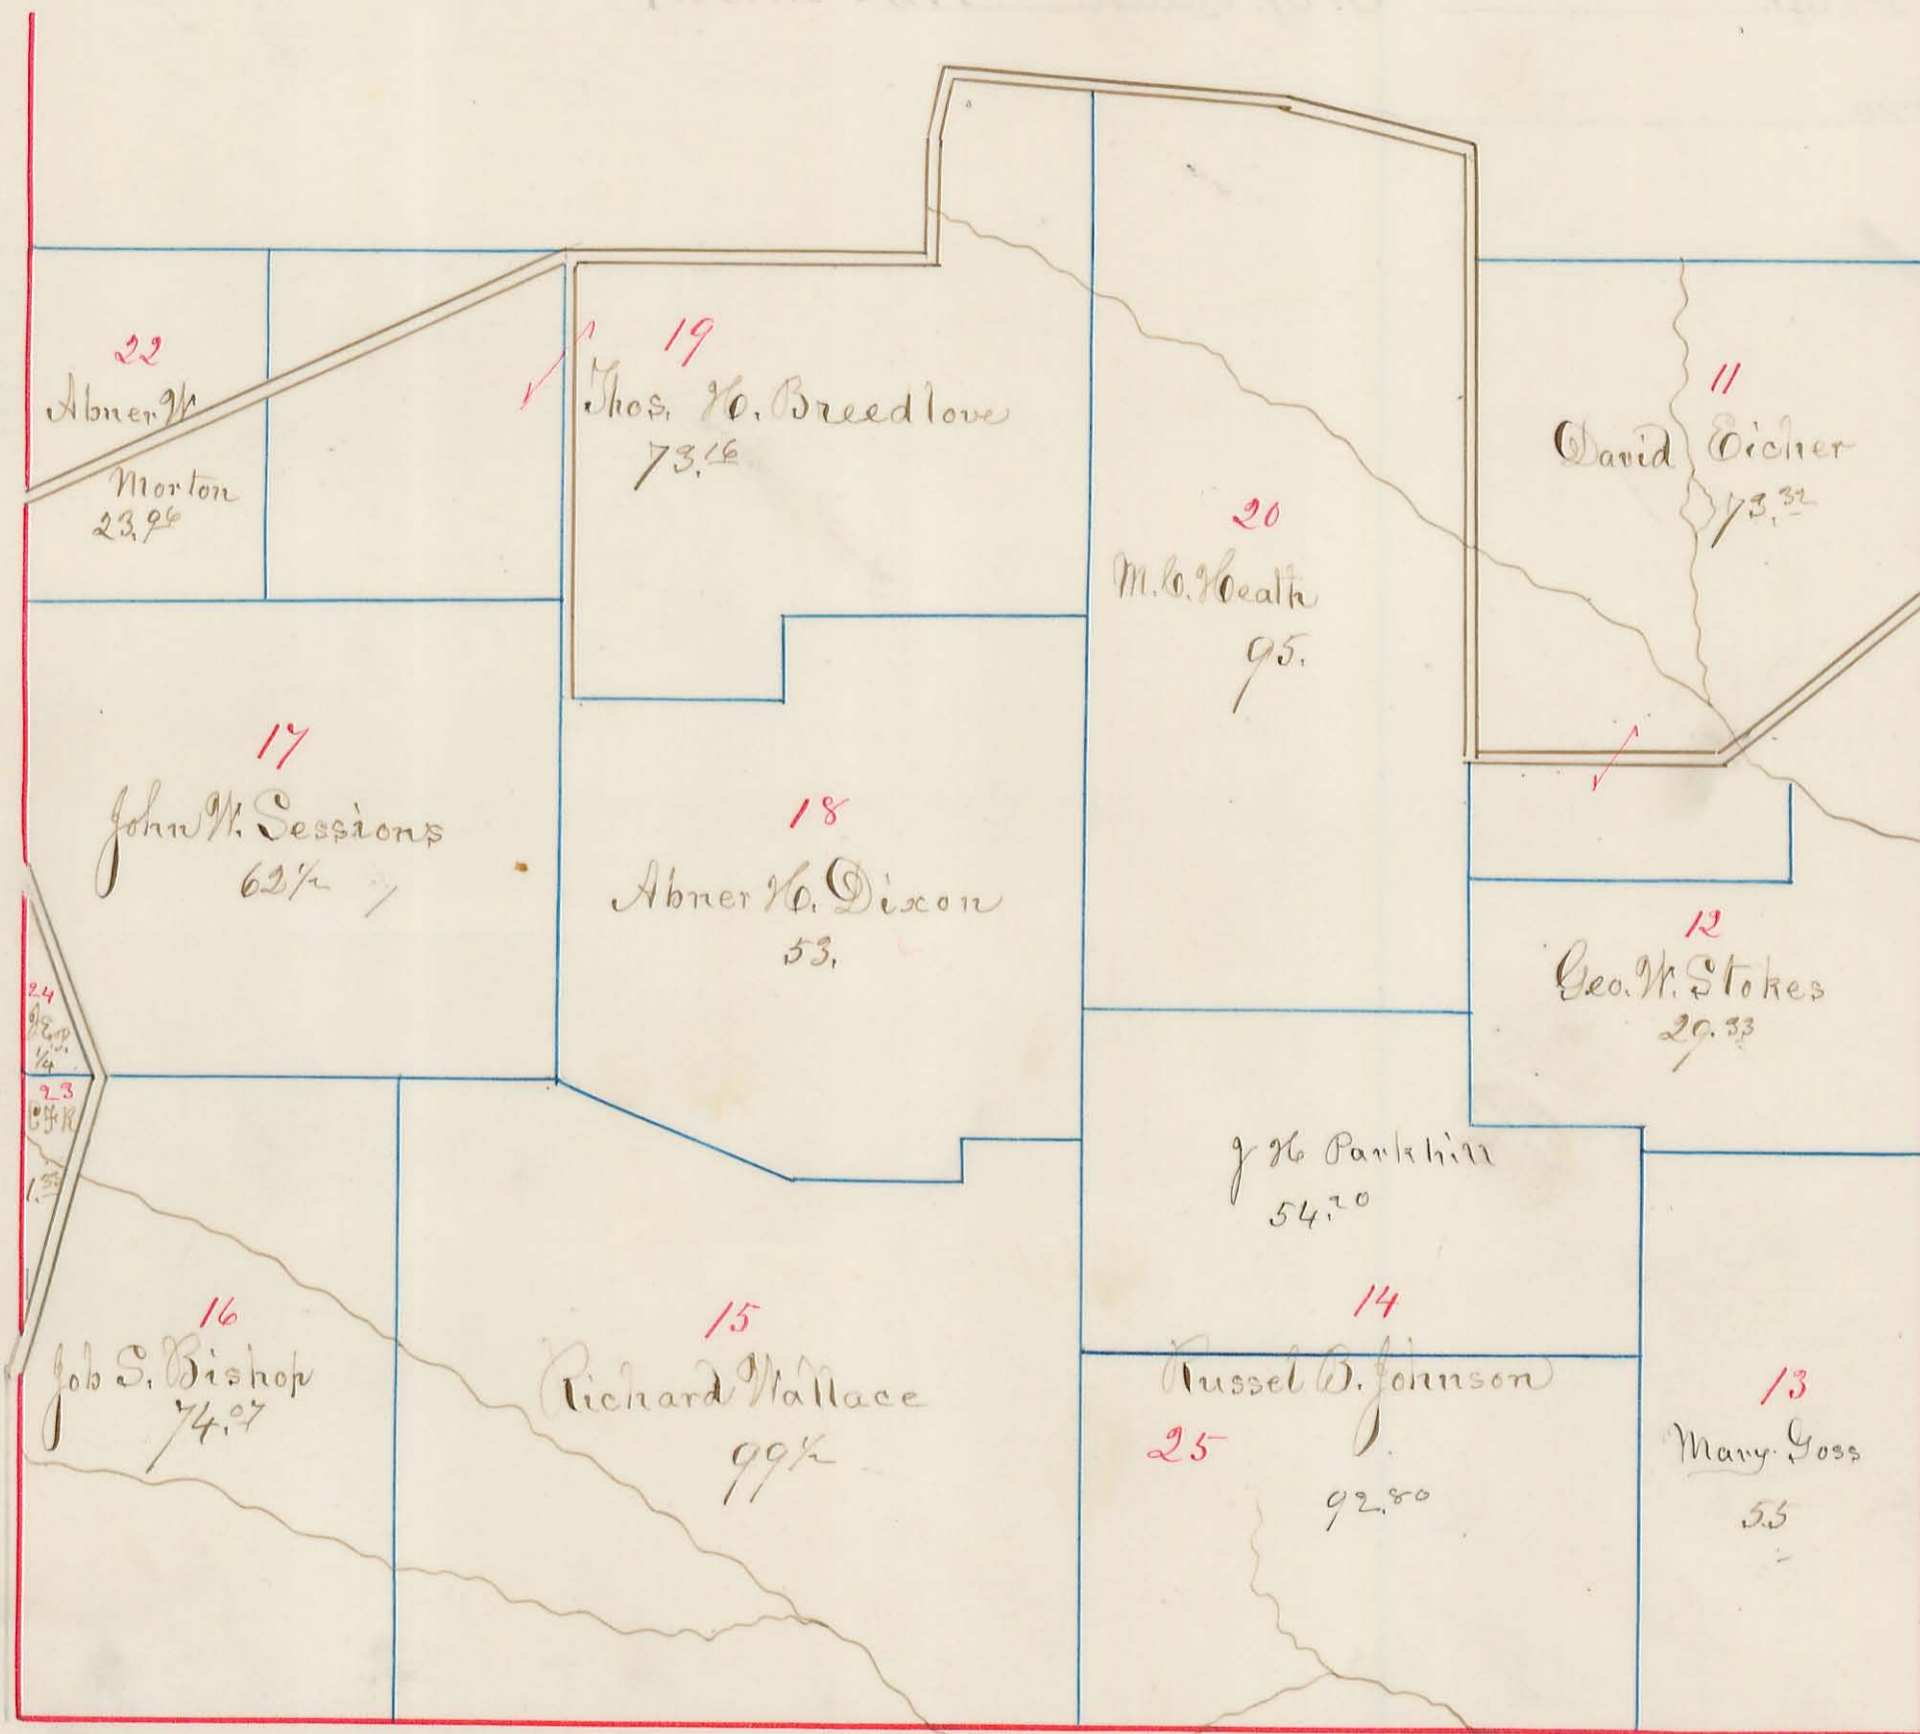 22
Abner W
Morton
23.96
19
Thos. H. Breedlove
73.16
11
David Eicher
73.32
20
M. C. Heath
95.
17
John W. Sessions
62 1/2
18
Abner H. Dixon
53.
12
Geo. W. Stokes
29.33
24
1/4
23
C F R
1.
J H Parkhill
54.20
16
Job S. Bishop
74.07
15
Richard Wallace
99 1/2
14
Russel B. Johnson
25
92.80
13
Mary Goss
55